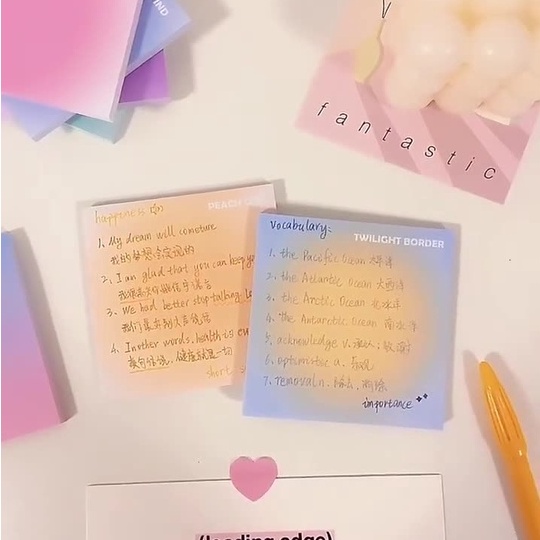 IND
fantastic
happiness
PEACH
1. My dream will cometure
我的梦想会实现的
2. I am glad that you can keep yo
3. We had better stop talking lo
我们最好别大声说话
4. In other words, health is ev
换句话说，健康就是一切
short
Vocabulary:
TWILIGHT BORDER
1. the Pacific Ocean 太平洋
2. the Atlantic Ocean 大西洋
3. the Arctic Ocean 北冰洋
4. the Antarctic Ocean 南冰洋
5. acknowledge v. 承认，致谢
6. optimistic a. 乐观
7. removal n.
importance
(leading edge)